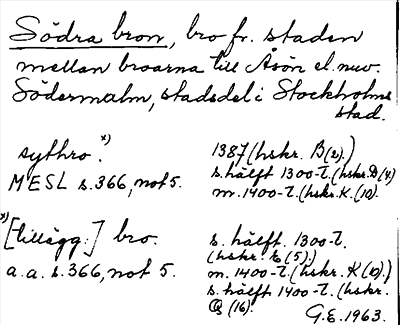 Södra bron, bro fr. staden
mellan broarna till Åsön el. nuv.
Södermalm, stadsdel i Stockholms
stad.
sythro. x)
MESL s. 366, not 5.
1387 (hskr. B (2).)
s. hälft 1300-t. (hskr. D (4)
m. 1400-t. (hskr. K. (10).
x) [tillägg:] bro.
a. a. s. 366, not 5.
s. hälft. 1300-t.
(hskr. E (5);)
m. 1400-t. (hskr. K (10);)
s. hälft 1400-t. (hskr.
Q (16).
G.E. 1963.